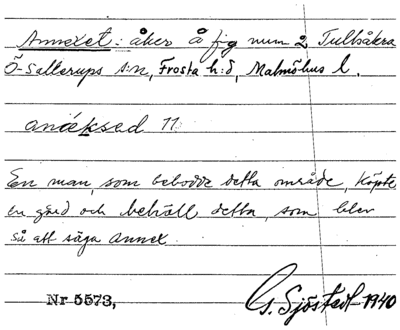 Annexet: åker å fig num 2 Tullsåkra
Ö-Sallerups s:n, Frosta h:d, Malmöhus l.
anäksed 11
En man, som bebodde detta område, köpte
en gård och behöll detta, som blev
så att säga annex.
Nr 5573,
G. Sjöstedt-1940